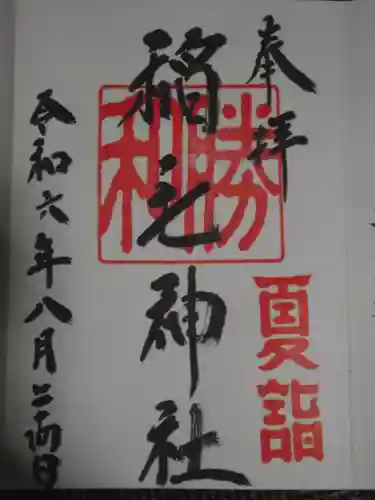 奉拝
夏詣
稲毛神社
勝利
令和六年八月二十両日